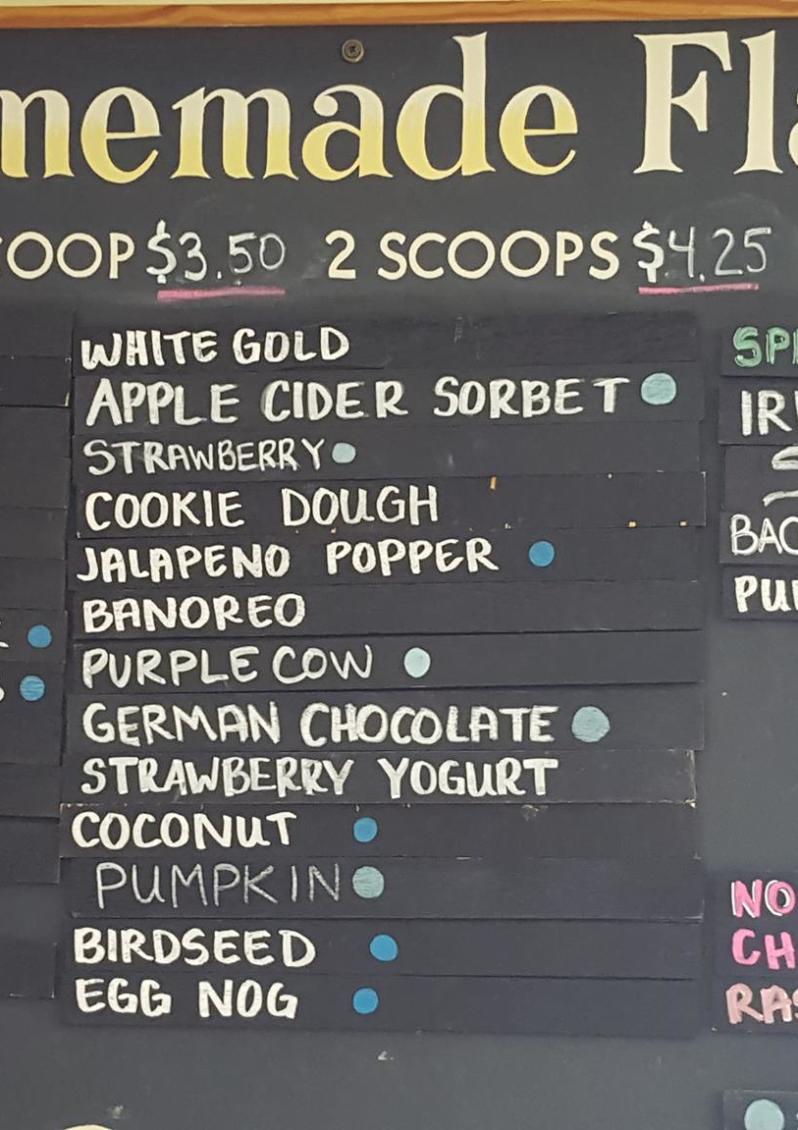 memade Fl
OOP $3.50 2 SCOOPS $4.25
WHITE GOLD
APPLE CIDER SORBET
STRAWBERRY
COOKIE DOUGH
JALAPENO POPPER
BANOREO
PURPLE COW
GERMAN CHOCOLATE
STRAWBERRY YOGURT
COCONUT
PUMPKIN
BIRDSEED
EGG NOG
SP
IR
BAC
PU
NO
CH
RAS